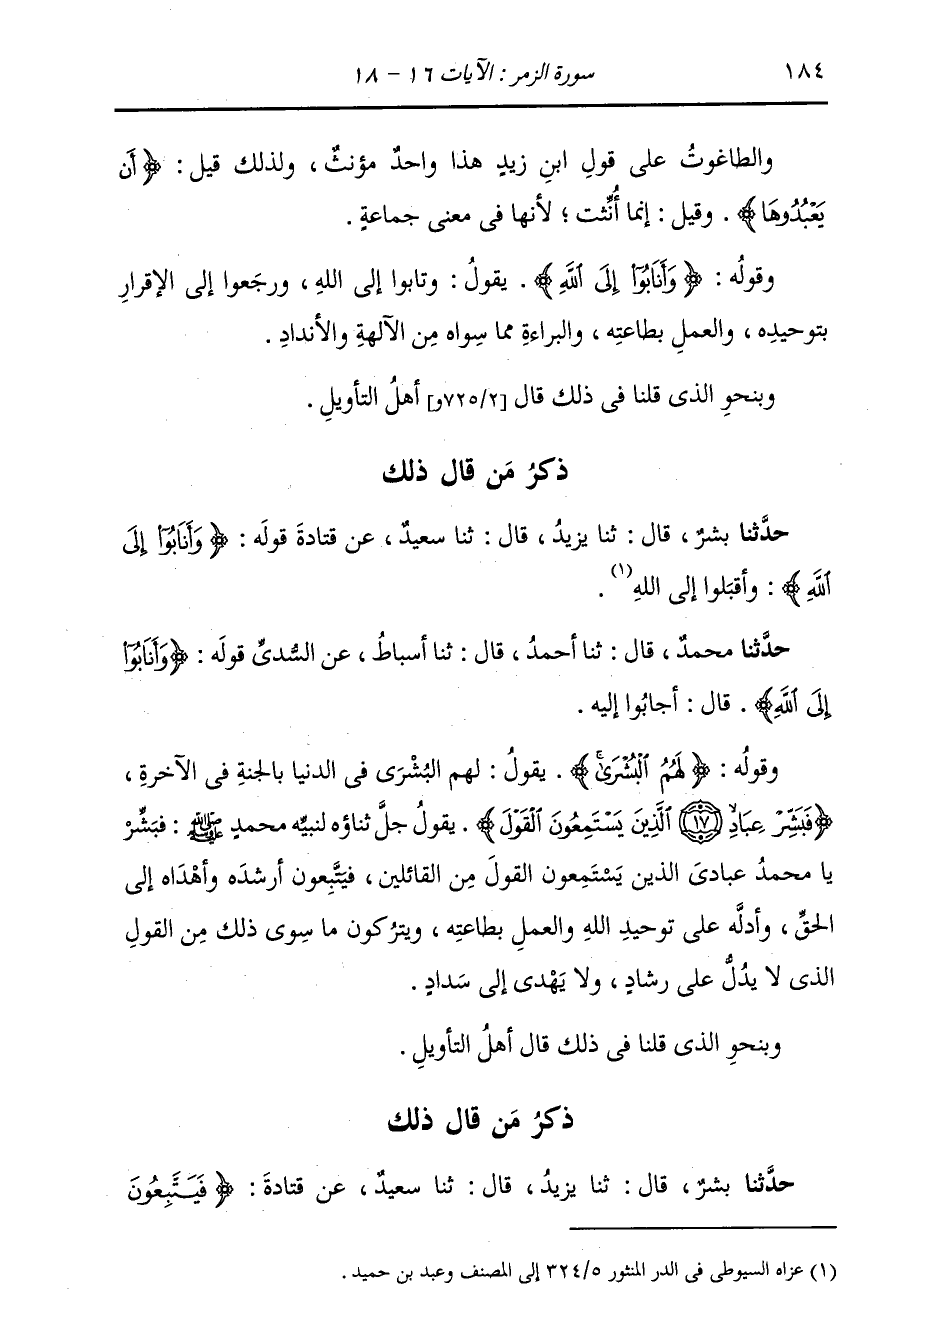 ١٨٤
سورة الزمر : الآيات ١٦ - ١٨
والطاغوتُ على قولِ ابنِ زيدٍ هذا واحدٌ مؤنثٌ ، ولذلك قيل : ﴿ أَن
يَعْبُدُوهَا ﴾ . وقيل : إنما أُنِّثت ؛ لأنها فى معنى جماعةٍ .
وقولُه : ﴿ وَأَنَابُوٓا۟ إِلَى ٱللَّهِ ﴾ . يقولُ : وتابوا إلى اللهِ ، ورجَعوا إلى الإقرارِ
بتوحيدِه ، والعملِ بطاعتِه ، والبراءةِ مما سِواه مِن الآلهةِ والأندادِ .
وبنحوِ الذى قلنا فى ذلك قال [٧٢٥/٢و] أهلُ التأويلِ .
ذكرُ مَن قال ذلك
حدَّثنا بشرٌ ، قال : ثنا يزيدُ ، قال : ثنا سعيدٌ ، عن قتادةَ قولَه : ﴿ وَأَنَابُوٓا۟ إِلَى
ٱللَّهِ ﴾ : وأقبَلوا إلى اللهِ(١) .
حدَّثنا محمدٌ ، قال : ثنا أحمدُ ، قال : ثنا أسباطُ ، عن السُّدىِّ قولَه : ﴿ وَأَنَابُوٓا۟
إِلَى ٱللَّهِ ﴾ . قال : أجابُوا إليه .
وقولُه : ﴿ لَهُمُ ٱلْبُشْرَىٰۚ ﴾ . يقولُ : لهم البُشْرَى فى الدنيا بالجنةِ فى الآخرةِ ،
﴿ فَبَشِّرْ عِبَادِ ۙ ١٧ ٱلَّذِينَ يَسْتَمِعُونَ ٱلْقَوْلَ ﴾ . يقولُ جلَّ ثناؤه لنبيِّه محمدٍ ﷺ : فبَشِّرْ
يا محمدُ عبادىَ الذين يَسْتَمِعون القولَ مِن القائلين ، فيَتَّبِعون أرشدَه وأهْدَاه إلى
الحقِّ ، وأدلَّه على توحيدِ اللهِ والعملِ بطاعتِه ، ويترُكون ما سِوى ذلك مِن القولِ
الذى لا يدُلُّ على رشادٍ ، ولا يَهْدى إلى سَدادٍ .
وبنحوِ الذى قلنا فى ذلك قال أهلُ التأويلِ .
ذكرُ مَن قال ذلك
حدَّثنا بشرٌ ، قال : ثنا يزيدُ ، قال : ثنا سعيدٌ ، عن قتادةَ : ﴿ فَيَتَّبِعُونَ
(١) عزاه السيوطى فى الدر المنثور ٣٢٤/٥ إلى المصنف وعبد بن حميد .